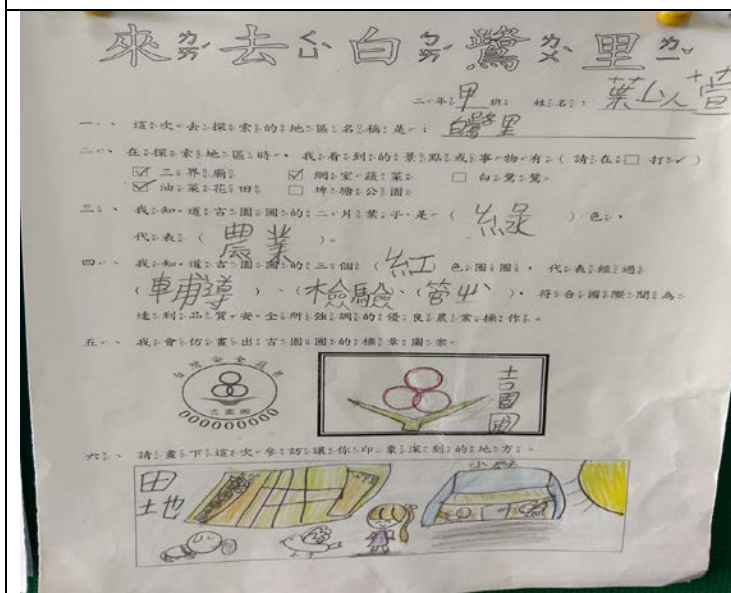 來去白鷺里
二年甲班 姓名：葉以萱
一、這次去探索的地區名稱是：白鷺里
二、在探索地區時，我看到的景點或事物有（請在□打✓）
☑三界廟 ☑網室蔬菜 □白鷺鷥
☑油菜花田 □埤塘公園
三、我知道吉園圃的二片葉子是（綠）色，
代表（農業）。
四、我知道吉園圃的三個（紅色圈圈，代表經過
（輔導）、（檢驗、（管），符合國際間為
達到品質安全所強調的優良農業操作。
五、我會仿畫出吉園圃的標章圖案。
吉園圃
000000000
吉園圃
六、請畫下這次參訪讓你印象深刻的地方。
田地